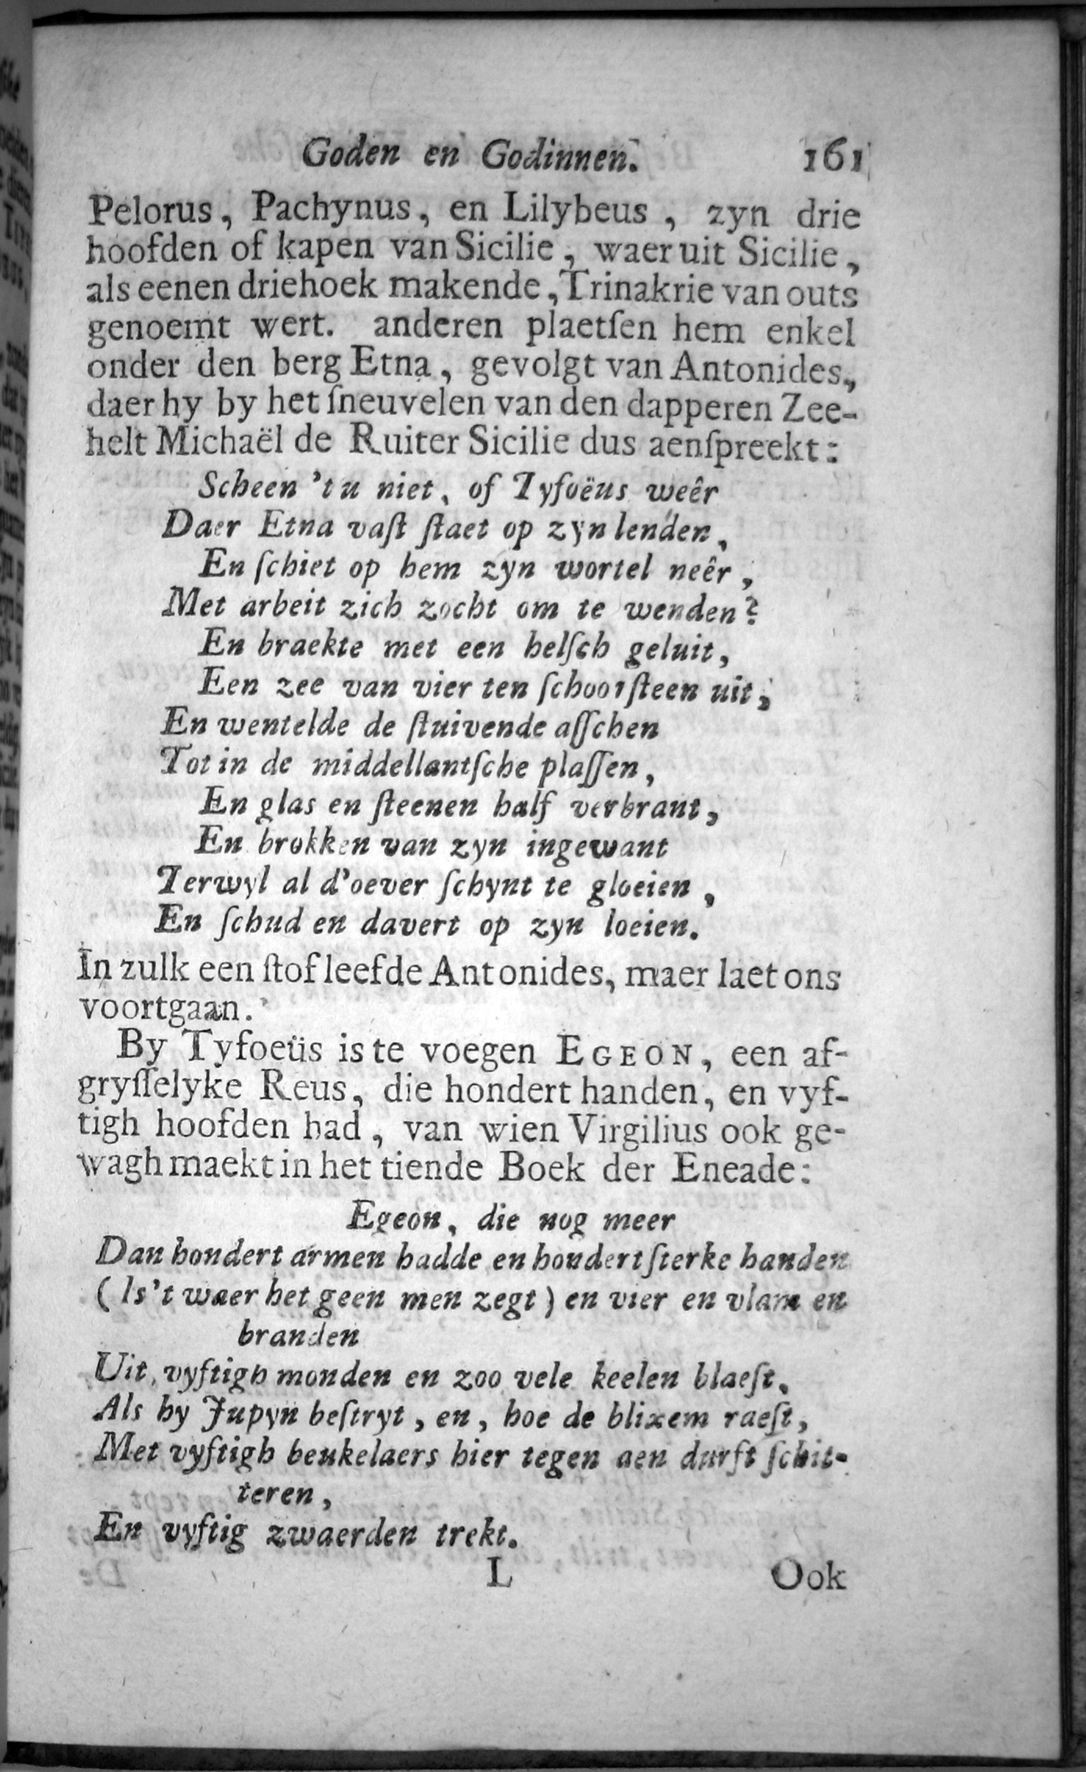 Goden en Godinnen. 161
Pelorus, Pachynus, en Lilybeus, zyn drie
hoofden of kapen van Sicilie, waer uit Sicilie,
als eenen driehoek makende, Trinakrie van outs
genoemt wert. anderen plaetſen hem enkel
onder den berg Etna, gevolgt van Antonides,
daer hy by het ſneuvelen van den dapperen Zee-
helt Michaël de Ruiter Sicilie dus aenſpreekt:
Scheen 't u niet, of Tyfoëus weêr
Daer Etna vaſt ſtaet op zyn lenden,
En ſchiet op hem zyn wortel neêr,
Met arbeit zich zocht om te wenden?
En braekte met een helſch geluit,
Een zee van vier ten ſchoorſteen uit,
En wentelde de ſtuivende aſſchen
Tot in de middellantſche plaſſen,
En glas en ſteenen half verbrant,
En brokken van zyn ingewant
Terwyl al d'oever ſchynt te gloeien,
En ſchud en davert op zyn loeien.
In zulk een ſtof leefde Antonides, maer laet ons
voortgaan.
By Tyfoeüs is te voegen EGEON, een af-
gryſſelyke Reus, die hondert handen, en vyf-
tigh hoofden had, van wien Virgilius ook ge-
wagh maekt in het tiende Boek der Eneade:
Egeon, die nog meer
Dan hondert armen hadde en hondert ſterke handen
(Is't waer het geen men zegt) en vier en vlam en
branden
Uit vyftigh monden en zoo vele keelen blaeſt,
Als hy Jupyn beſtryt, en, hoe de blixem raeſt,
Met vyftigh beukelaers hier tegen aen durft ſchit-
teren,
En vyftig zwaerden trekt.
L Ook